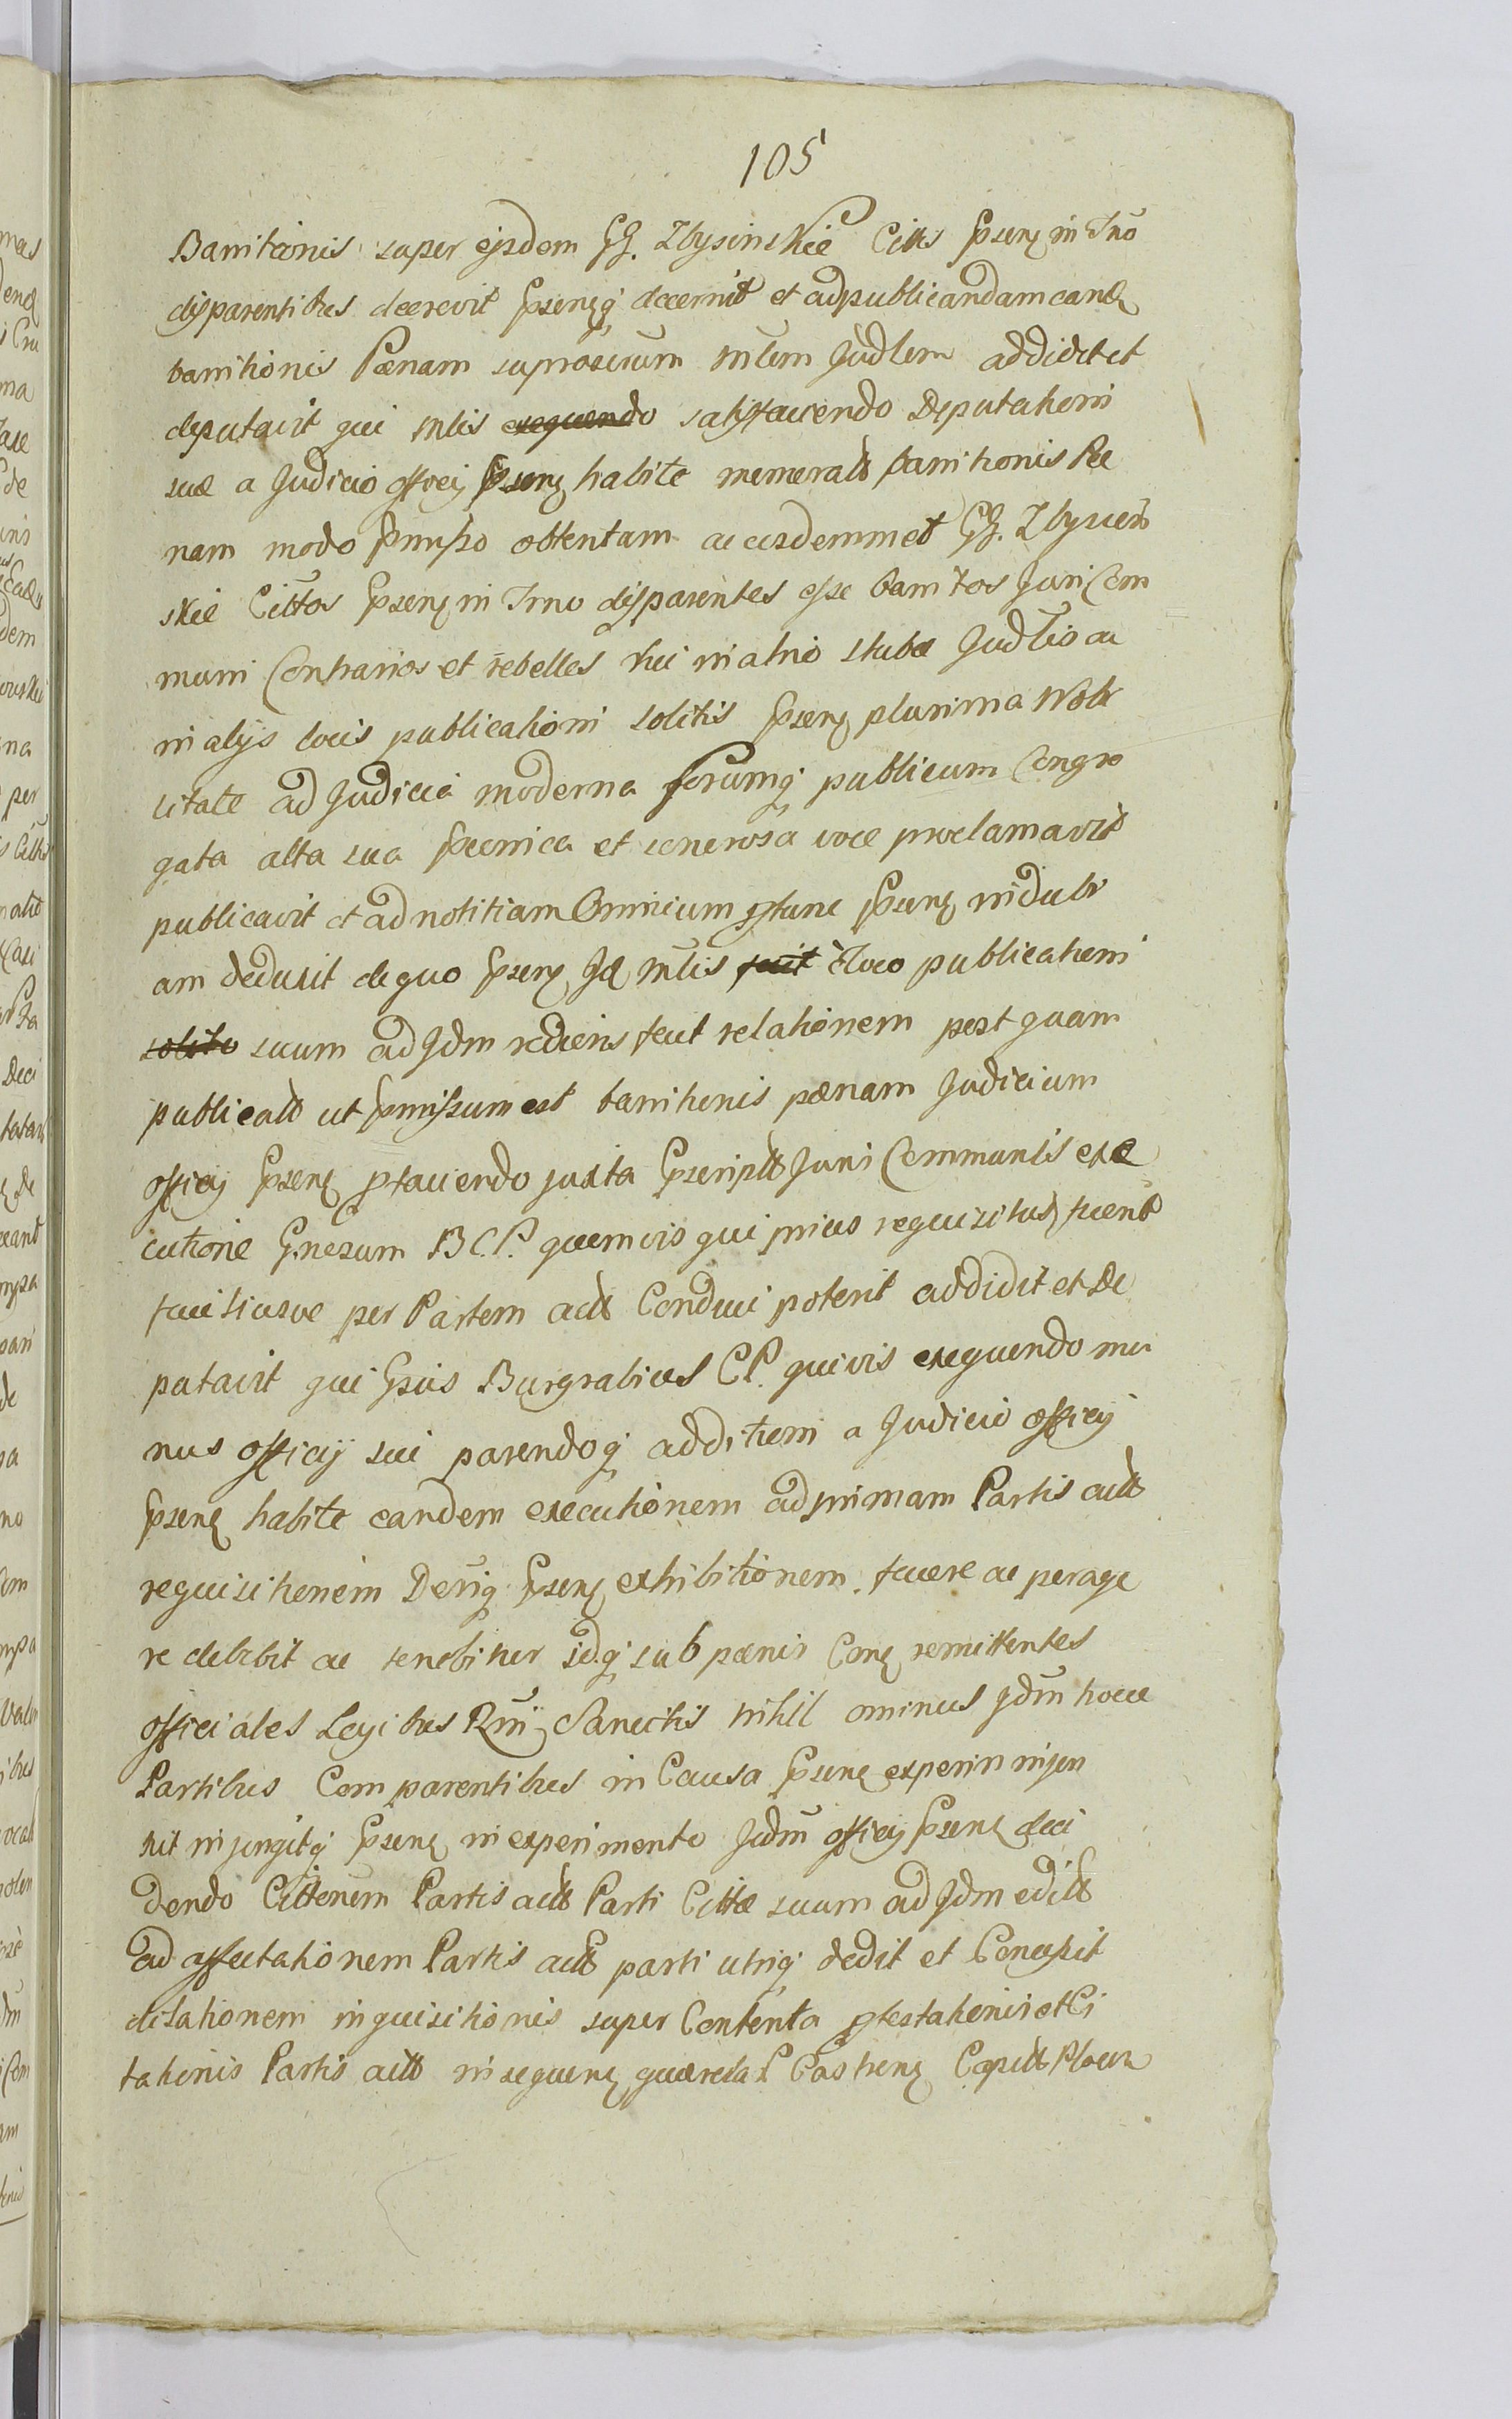 105
Banitionis super ejsdem GG. Zbysinskie Cittis Psenẽ in Tr̃no
disparentibus decrevit Psenẽq̃ decernit et ad publicandam eandẽ
banitionis Pænam suprascrum Mlem Judlem addidit et
deputavit qui Mlis exequendo satisfaciendo Deputationi
suæ a Judicio officij Psenẽ habitæ memeratt banitionis Pæ
nam modo Pmisso obtentam ac eosdemmet GG. Zbysiń
skie Cittos Psenẽ in Trno disparentes esse banitos Juri Com
muni Contrarios et rebelles hic in atrio stubæ Judlis ac
in alijs locis publicationi solitis Psenẽ plurima Nobi
litate ad Judicia moderna forumq̃ publicum Congre
gata alta sua Pconica et sonorosa voce proclamavit
publicavit et ad notitiam Omnium Ptunc Psenẽ indubi
am deduxit de quo Psenẽ Id̃ Mlis fecit è loco publicationi
solito suum ad Jdm rediens fecit relationem post quam
publicatt ut Pmissum est banitionis pænam Judicium
officij Psenẽ Pfaciendo juxta Pscriptt Juris Communis exe
cutione Gnesum B. C. P. quemvis qui prius requisitus fuerit
faciliusve per Partem actt Conduci poterit addidit et De
putavit qui Gsus Burgrabius C. P. quivis exequendo mu
nus officij sui parendoq̃ additioni a Judicio officij
Psenẽ habitæ eandem executionem ad primam Partis actt
requisitionem Dẽtiq̃ Psenẽ exhibitionem facere ac perage
re debebit ac tenebitur idq̃ sub pænis Conẽ remittentes
officiales Legibus Rnĩ Sancitis nihil ominus Jdm hocce
Partibus Comparentibus in Causa Psenẽ experiri injun
xit injungitq̃ Psenẽ in experimento Judm officij Psenẽ deci
dendo Cittionem Partis actt Parti Cittæ suum ad Jdm editt
ad affectationem Partis actt parti utriq̃ dedit et Concessit
dilationem inquisitionis super Contenta Ptestationis et Ci
tationis Partis actt in sequenẽ querelas Castrenẽ Capitt